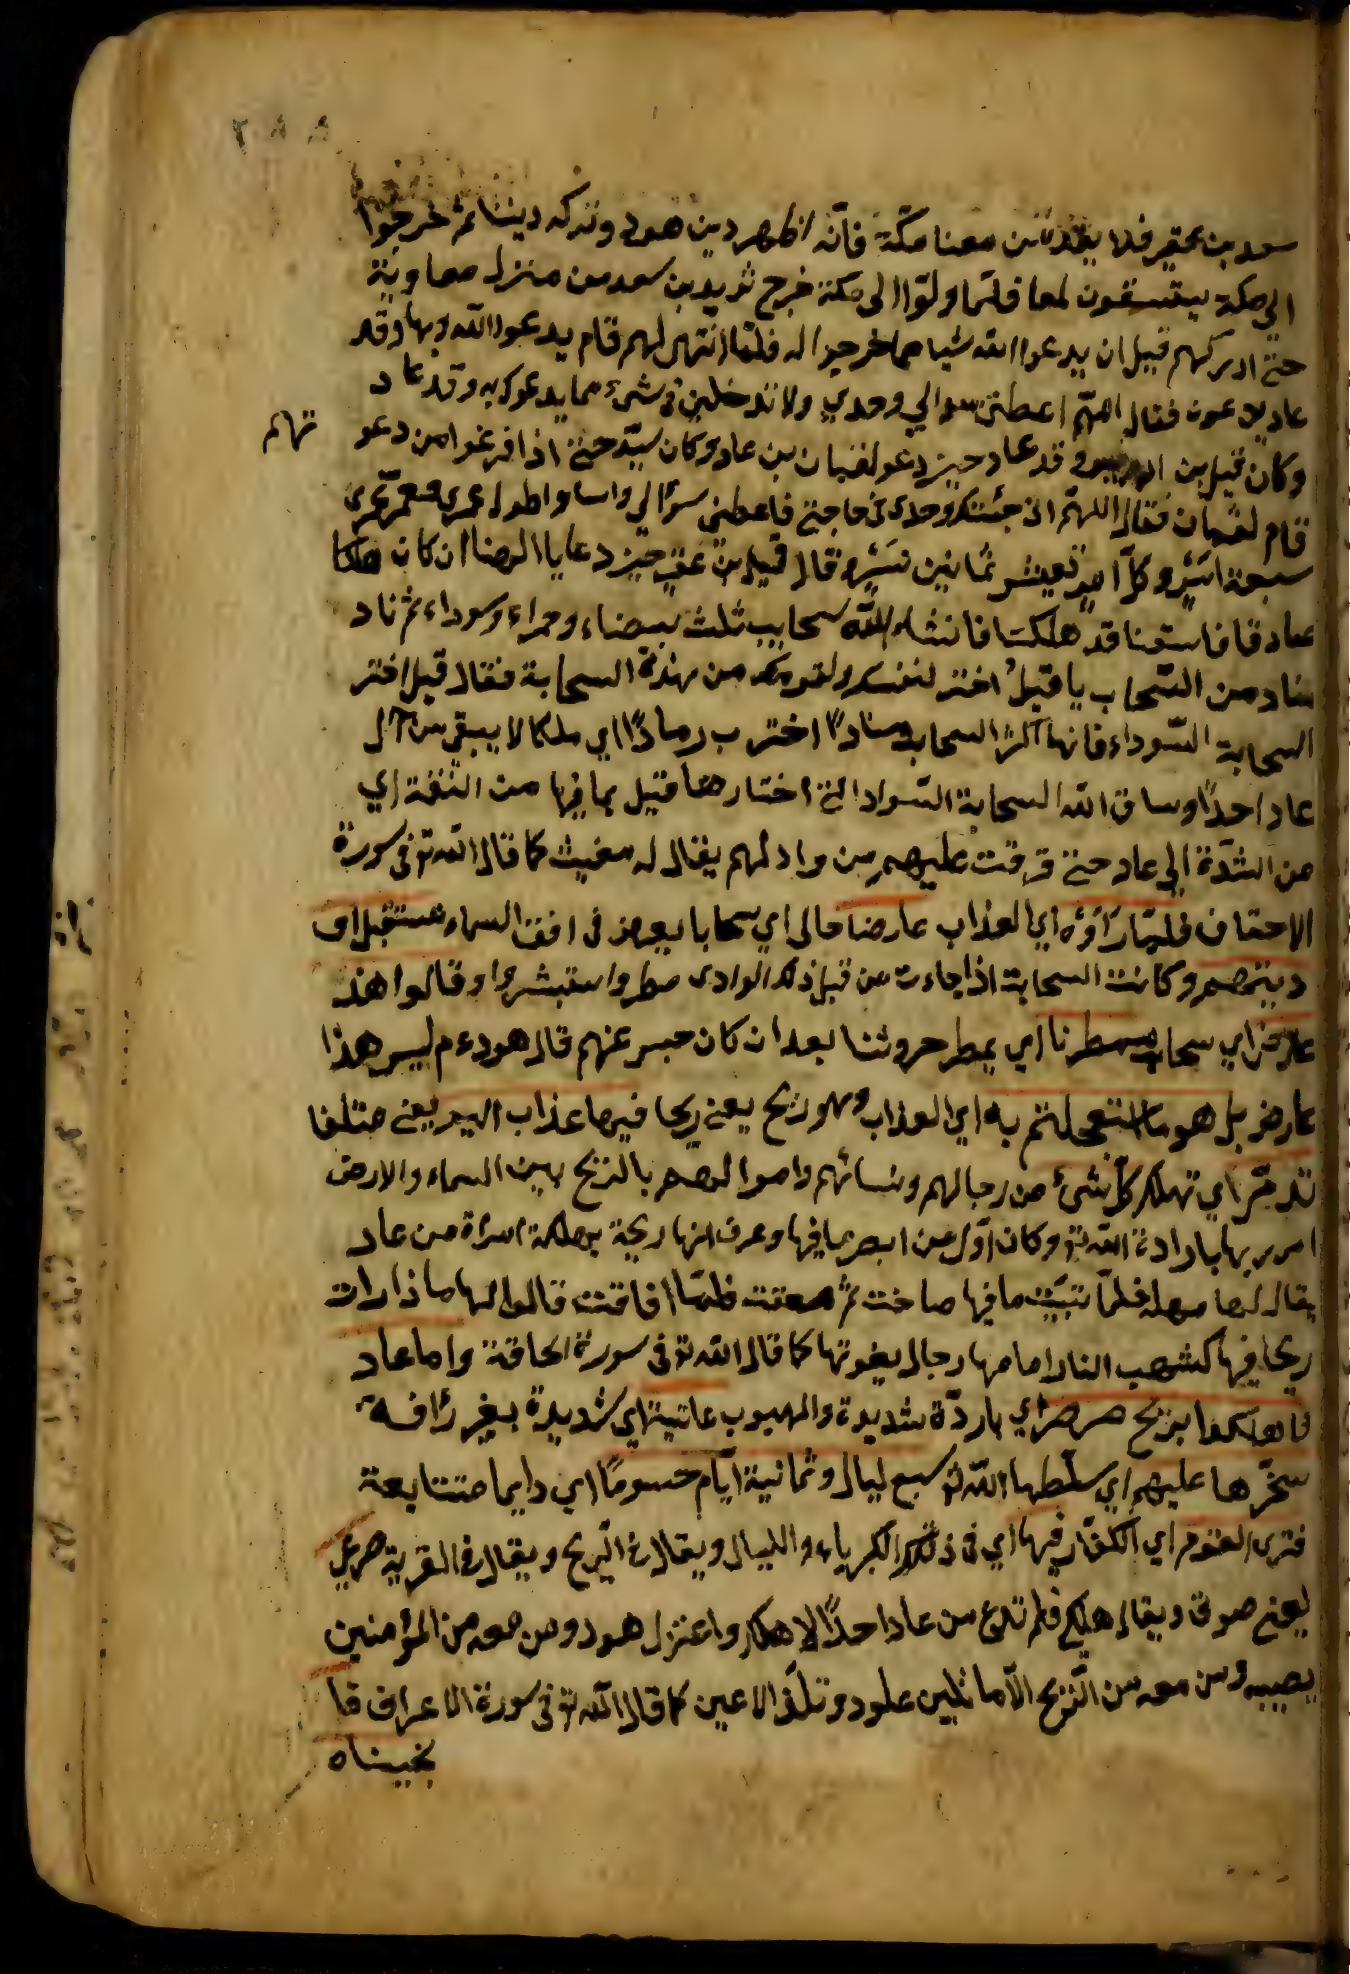 سعد بن عقير فلا يقدمن معنا مكة فانه اظهر دين هود وترك ديننا ثم خرجوا
الى مكة يستسقون لها فلما ولوا الى مكة خرج ثريد بن سعد من منزل معاوية
حتى ادركهم قبل ان يدعوا الله شيا مما خرجوا له فلما انتهى لهم قام يدعوا الله وبها وقد
عاد يدعون فقال اللهم اعطني سوالي وحدي ولا تدخلني في شىء مما يدعوك به وقد عاد
وكان قيل بن وقد عاد حين دعو لقمان بن عاد وكان سيد حتى اذا فرغوا من دعو تهم
قام لقمان فقال اللهم اني جئتك وحدى في حاجتي فاعطني سؤالي واطول عمري فعمر عمرى
سبعة انسر وكل تعيش ثمانين نسر وقال قيل بن عنز حين دعا يا الهنا ان كان هلكا
عاد فاستعنا قد هلكنا فانشاء الله سحايب ثلث بيضاء وحمراء وسوداء ثم ناد
مناد من السحاب يا قيل اختر لنفسك ولقومك من هذه السحابة فقال قيل اختر
السحابة السوداء فانها اكثر السحاب منادا اخترت رمادا اي ملكا لا يبقي من آل
عاد احدا وساق الله السحابة السوادا التي اختارها قيل بما فيها من النقمة اي
من الشدة الى عاد حتى قرقت عليهم من واد لهم يقال له مغيث كما قال الله تع في سورة
الاحقاف فلما رآؤه اي العذاب عارضا حال اي سحابا يعرض في افق السماء مستقبل او
ديتهم وكانت السحابة اذا جاءت من قبل ذلك الوادى مطر واستبشروا وقالوا هذ
عارض اي سحاب ممطرنا اي يمطر حروثنا بعد ان كان حبس عنهم قال هود ءم ليس هذا
عارض بل هو ما استعجلتم به اي العذاب وهو ريح يعني ريحا فيها عذاب اليم يعني متلفا
تدمر اي تهلك كل شىء من رجالهم ونسائهم واموالهم بالريح بين السماء والارض
امر ربها بارادة الله تع وكان اول من ابصر ما فيها وعرف انها ريحة مهلكة امراة من عاد
يقال لها مهله فلما تبينت ما فيها صاخت ثم صعقت فلما افاقت قالوا لها ماذا رات
ريحا فيها كشهب النار امامها رجال يقوتها كما قال الله تع في سورة الحاقة واما عاد
فاهلكوا بريح صرصر اي باردة شديدة والهبوب عاتية اي شديدة بغير رافة
سخرها عليهم اي سلطها الله تع سبع ليال وثمانية ايام حسوما اي دايما متتابعة
فترى القوم اي الكفار فيها اي في ذلك الكبرياء والليال ويقال في الريح ويقال في القرية صرعى
يعني موتى ويقال هلكى فلم تدع من عاد احدا الا هلك واعتزل هود ومن معه من المؤمنين
يصيبه ومن معه من الريح الا ما يلين علود وتلذ الاعين كما قال الله تع في سورة الاعراف فا
نجيناه